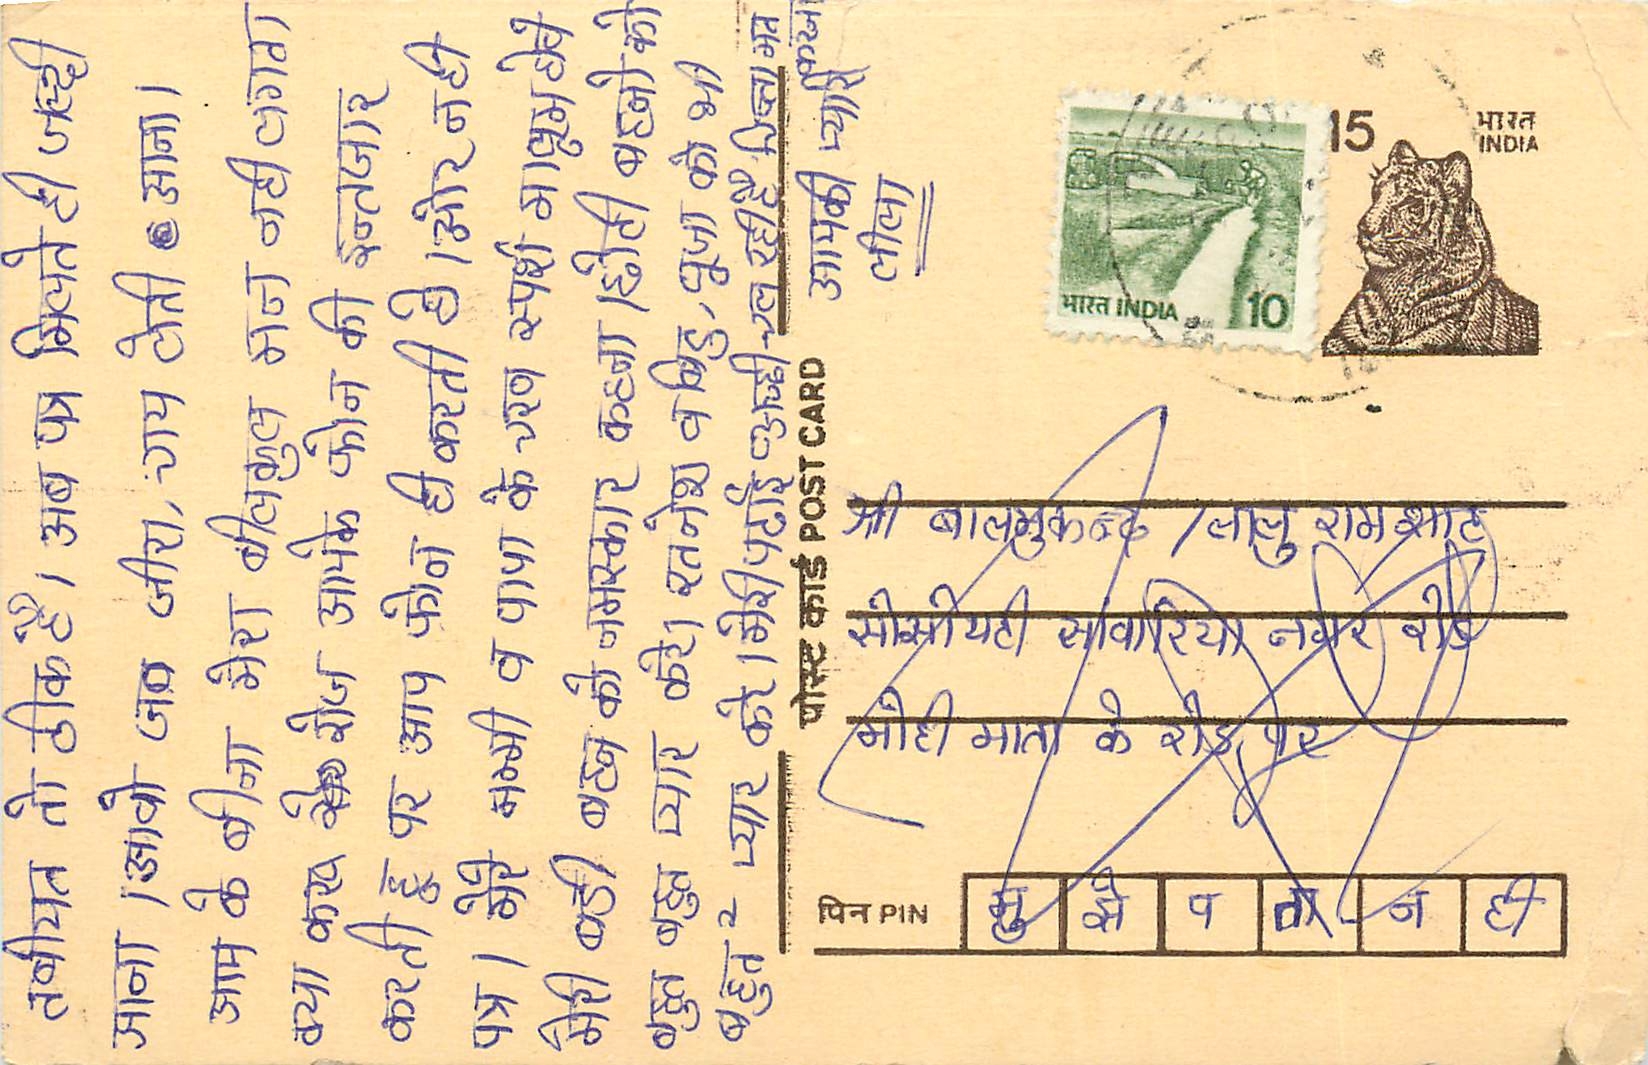 तबीयत तो ठीक है। अब पत्र मिलते ही जल्दी
आना। आवो जब जीरा, चाय लेती आना।
आप के बीना मेरा बीलकुल मन नही लगता
क्या करू रोज आपके फोन की इन्तजार
करती हूँ पर आप फोन ही करती है। और नही
पत्र। मेरे मम्मी व पापा के चरण स्पर्श मालूम होवे
मेरी बडी बहन को नमस्कार कहना। छोटी बहनो को
बहुत बहुत प्यार करे। रतनेश व बिट्टु, पूजा को भी
बहुत २ प्यार करे। मेरी पढाई अच्छी चल रही है चिन्ता मत
करना
आपकी प्यारी
लीला
पोस्ट कार्ड POST CARD
भारत INDIA 10
15
भारत
INDIA
श्री बालमुकन्द / लालु राम
सांवारिया नगर रोड
मोटी माता के रोड पर
पिन PIN
मु झे प ता न ही